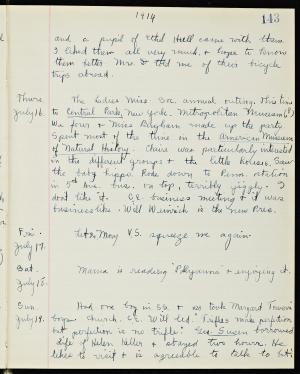 1914
143
and a pupil of Ethel Hull came with them.
I liked them all very much & hope to know
them better Mrs. D told me of their bicycle
trips abroad.
Thurs. The Ladies Miss. Soc. annual outing. This time
July 16. to Central Park, New York. Metropolitan Museum
We four & Miss Brigham made up the party.
Spent most of the time in the American Museum
of Natural History. Claire was particularly interested
in the different groups & the little houses. Saw
the baby hippo. Rode down to Penn. station
in 5th Ave. bus. on top, terribly jiggly. I
dont like it. C.E. business meeting & it was
businesslike. Will Weinrich is the new Pres.
Fri. Let May V.S. squeeze me again.
July 17.
Sat. Mama is reading "Pollyanna" & enjoying it.
July 18.
Sun. Had one boy in SS & so took Margaret Travis's
July 19. boys. Church. C.E. Will led. "Trifles make perfection
but perfection is no trifle." Geo. Susen borrowed
Life of Helen Keller & stayed two hours. He
likes to visit & is agreeable to talk to but